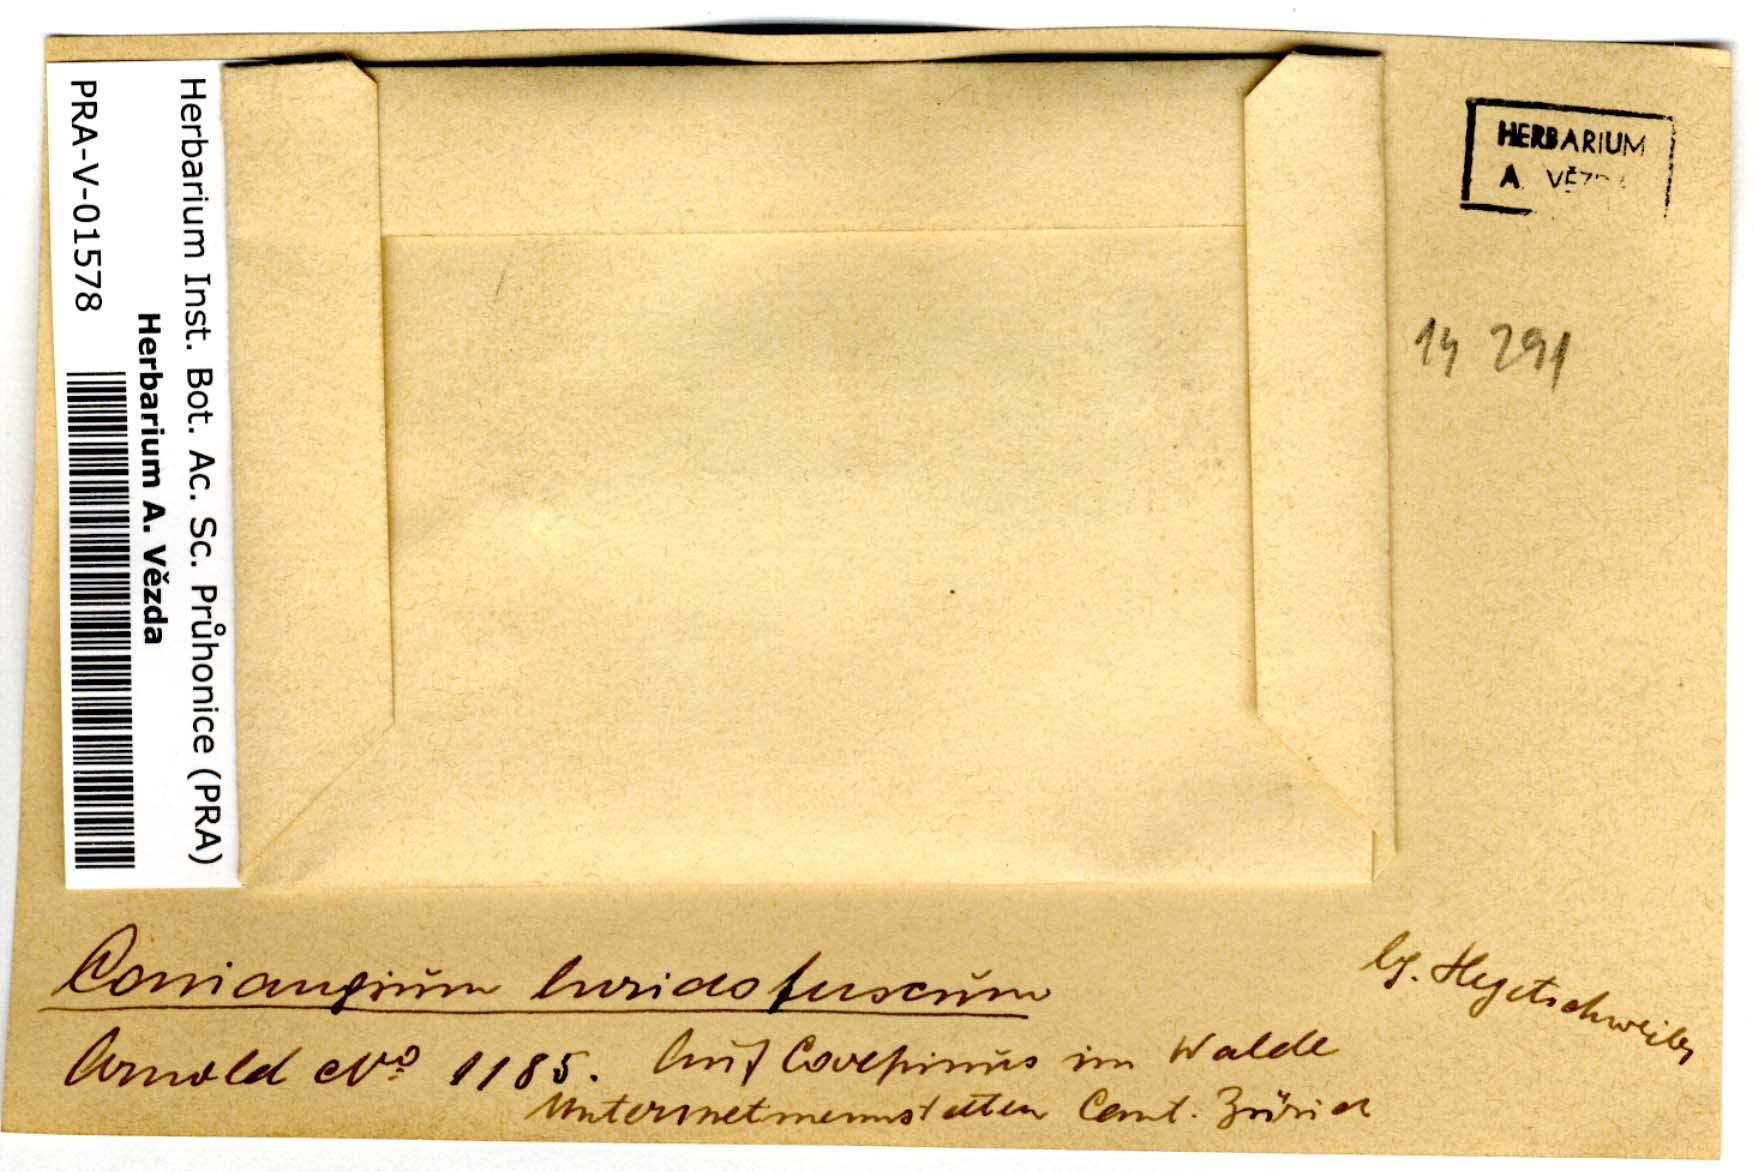 Herbarium Inst. Bot. Ac. Sc. Průhonice (PRA)
Herbarium A. Vězda
PRA-V-01578
HERBARIUM
A. VĚZDA
14 291
Coniangium luridofuscum
lg. Hegetschweiler
Arnold No. 1185. Auf Carpinus im Walde
Untermettmenstetten Cant. Zürich